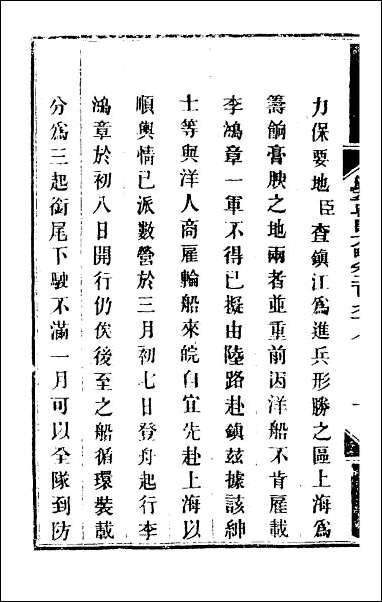 力保要地臣查鎮江為進兵形勝之區上海為
籌餉膏腴之地兩者並重前因洋船不肯雇載
李鴻章一軍不得已擬由陸路赴鎮茲據該紳
士等與洋人商雇輪船來皖自宜先赴上海以
順輿情已派數營於三月初七日登舟起行李
鴻章於初八日開行仍俟後至之船循環裝載
分為三起銜尾下駛不滿一月可以全隊到防